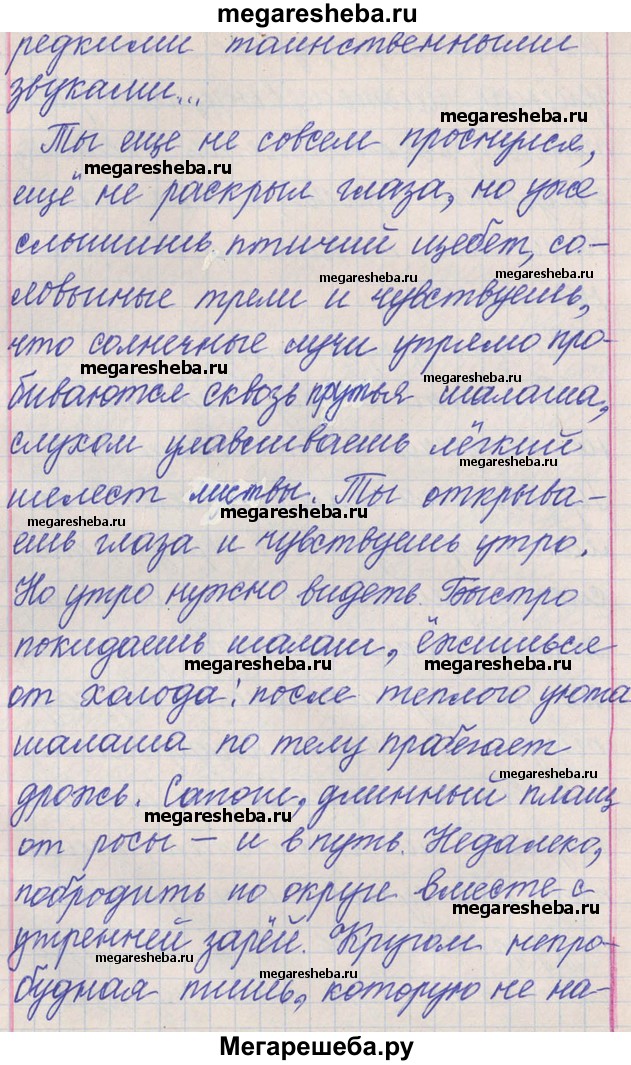 megaresheba.ru
редкими таинственными
звуками...
megaresheba.ru
Ты еще не совсем проснулся,
megaresheba.ru
ещё не раскрыл глаза, но уже
слышишь птичий щебет, со-
megaresheba.ru megaresheba.ru
ловьиные трели и чувствуешь,
что солнечные лучи упрямо про-
megaresheba.ru megaresheba.ru
биваются сквозь прутья шалаша,
слухом улавливаешь лёгкий
megaresheba.ru
шелест листвы. Ты открыва-
megaresheba.ru megaresheba.ru
ешь глаза и чувствуешь утро.
Но утро нужно видеть. Быстро
покидаешь шалаш, ёжишься
megaresheba.ru megaresheba.ru
от холода: после теплого уюта
шалаша по телу пробегает
megaresheba.ru
дрожь. Сапоги, длинный плащ
megaresheba.ru
от росы – и в путь. Недалеко,
побродить по округе вместе с
megaresheba.ru
утренней зарёй. Кругом непро-
megaresheba.ru megaresheba.ru
будная тишь, которую не на-
Мегарешеба.ру